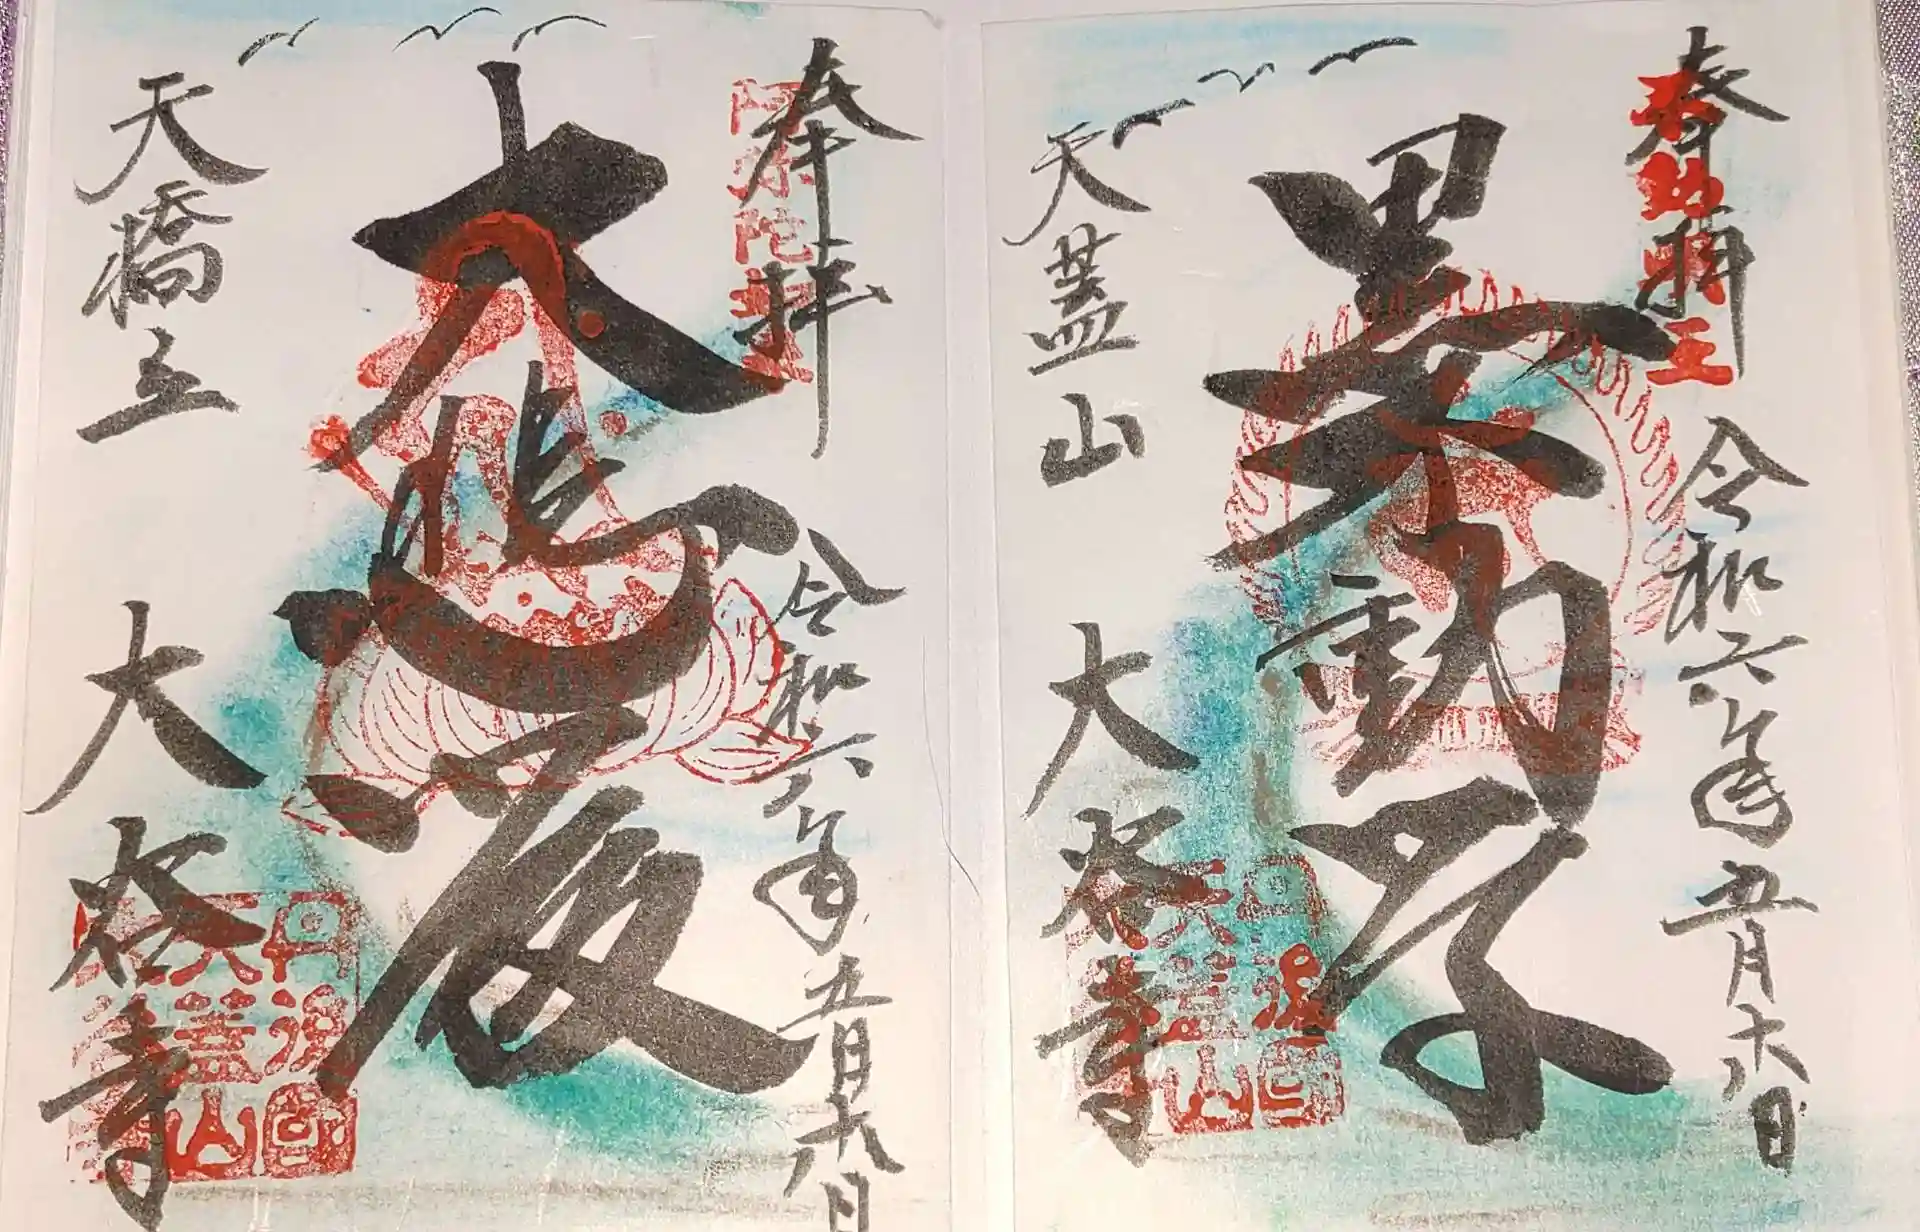 奉拝
不動明王
令和六年五月十八日
黒不動尊
天蓋山
大谷寺
丹後國
天蓋山
奉拝
阿弥陀
令和六年五月十八日
大悲
天橋立
大谷寺
丹後國
天蓋山